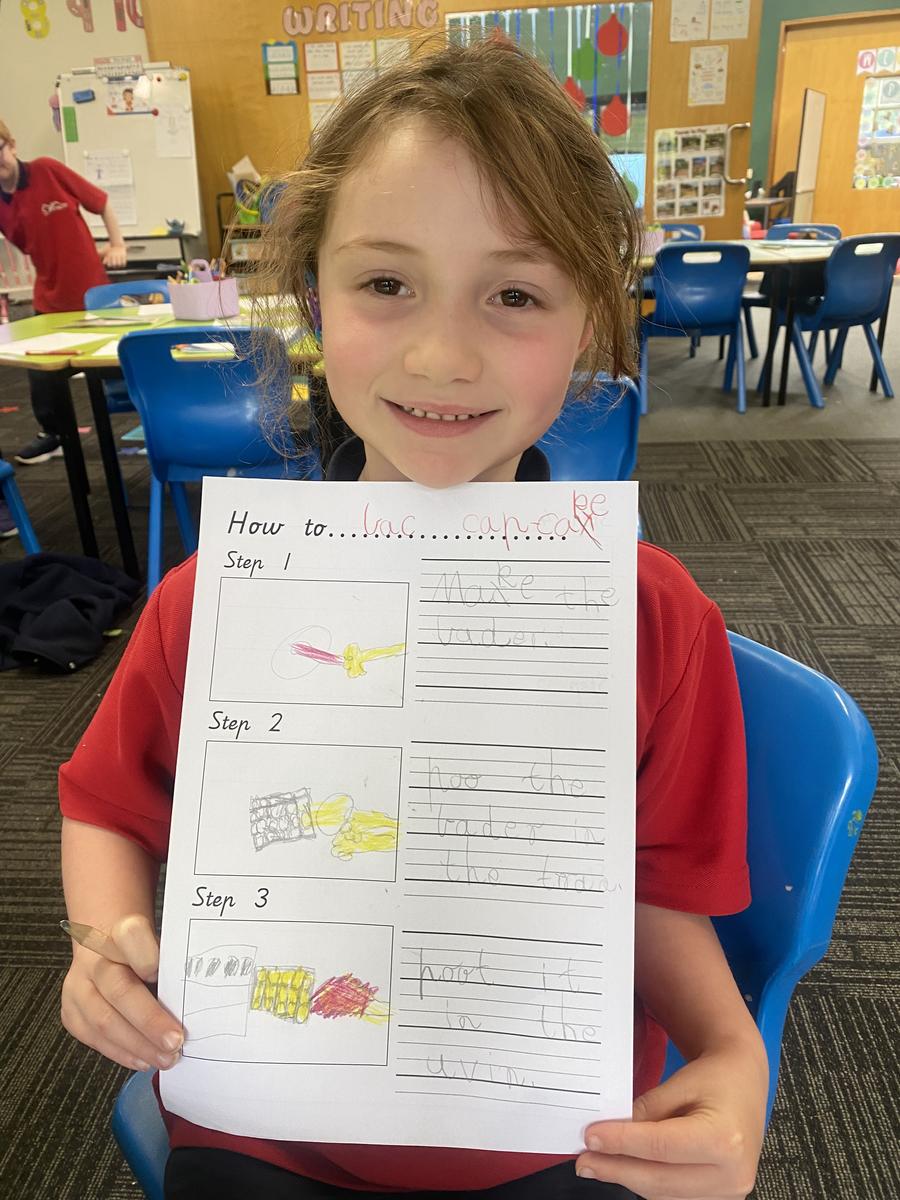 WRITING
How to... bac cap-cake
Step 1
Make the
bader.
Step 2
poo the
bader in
the
Step 3
poot it
in the
uvin.